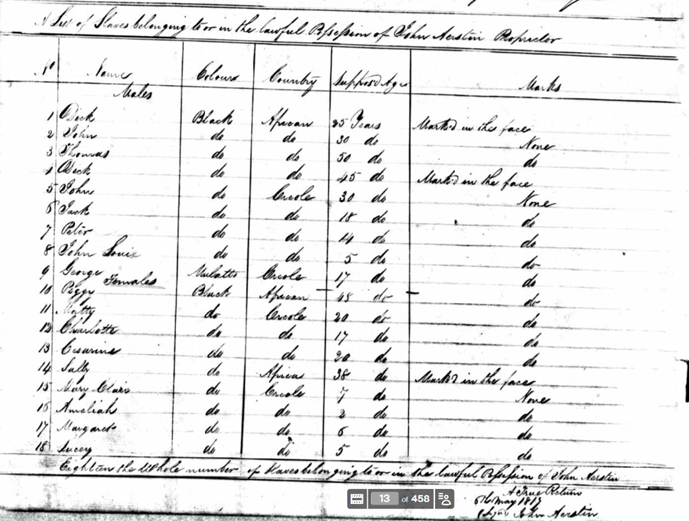 A List of Slaves belonging to or in the lawful Possession of John Aerstin Proprietor
No Name Colours Country Suppos'd Ages Marks
Males
1 Dick Black African 35 Years Mark'd in the face
2 John do do 30 do None
3 Thomas do do 50 do do
4 Dick do do 45 do Mark'd in the face
5 John do Creole 30 do None
6 Jack do do 18 do do
7 Peter do do 14 do do
8 John Louis do do 5 do do
9 George Mulatto Creole 17 do do
Females
10 Peggy Black African 48 do do
11 do Creole 20 do do
12 Charlotte do do 17 do do
13 do do 20 do do
14 Sally do Africa 38 do Mark'd in the face
15 Mary Clair do Creole 7 do None
16 Ameliah do do 2 do do
17 Margaret do do 6 do do
18 do do 5 do do
Eighteen the Whole number of Slaves belonging to or in the lawful Possession of John Aerstin
A True Return
May 1817
John Aerstin
13 of 458